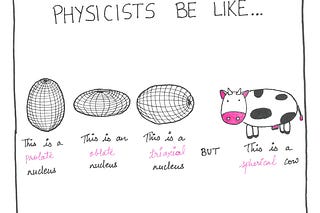 PHYSICISTS BE LIKE...
This is a
prolate
nucleus
This is an
oblate
nucleus
This is a
triaxial
nucleus
BUT
This is a
spherical cow